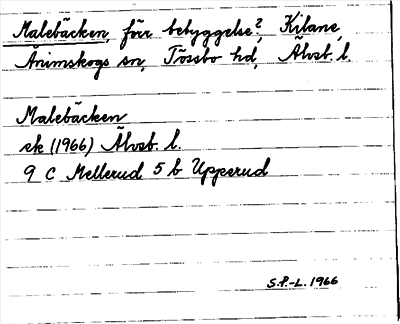 Malebäcken, förr bebyggelse? Kilane,
Ånimskogs sn, Tössbo hd, Älvsb. l.
Malebäcken
ek (1966) Älvsb. l.
9 C Mellerud 5 b Upperud
S.P.-L. 1966